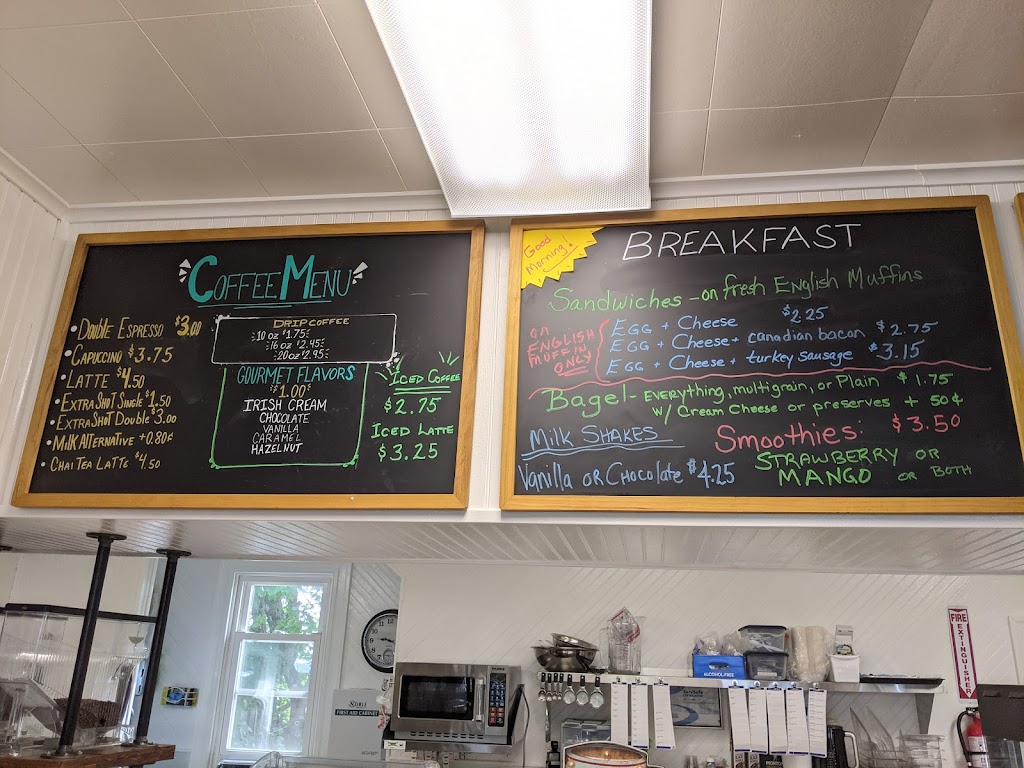 COFFEE MENU
• DOUBLE ESPRESSO $3.00
• CAPUCCINO $3.75
• LATTE $4.50
• EXTRA SHOT SINGLE $1.50
• EXTRA SHOT DOUBLE $3.00
• MILK ALTERNATIVE +0.80¢
• CHAI TEA LATTE $4.50
DRIP COFFEE
10 oz $1.75
16 oz $2.45
20 oz $2.95
GOURMET FLAVORS
$1.00
IRISH CREAM
CHOCOLATE
VANILLA
CARAMEL
HAZELNUT
ICED COFFEE
$2.75
ICED LATTE
$3.25
Good
Morning!
BREAKFAST
Sandwiches - on fresh English Muffins
ON
ENGLISH
MUFFIN
ONLY
EGG + Cheese $2.25
EGG + Cheese + canadian bacon $2.75
EGG + Cheese + turkey sausage $3.15
Bagel - EVERYTHING, multigrain, or Plain $1.75
w/ Cream Cheese or preserves + 50¢
Milk SHAKES
Vanilla OR Chocolate $4.25
Smoothies: $3.50
STRAWBERRY OR
MANGO OR BOTH
FIRST AID CABINET
ALCOHOL FREE
FIRE
EXTINGUISHER